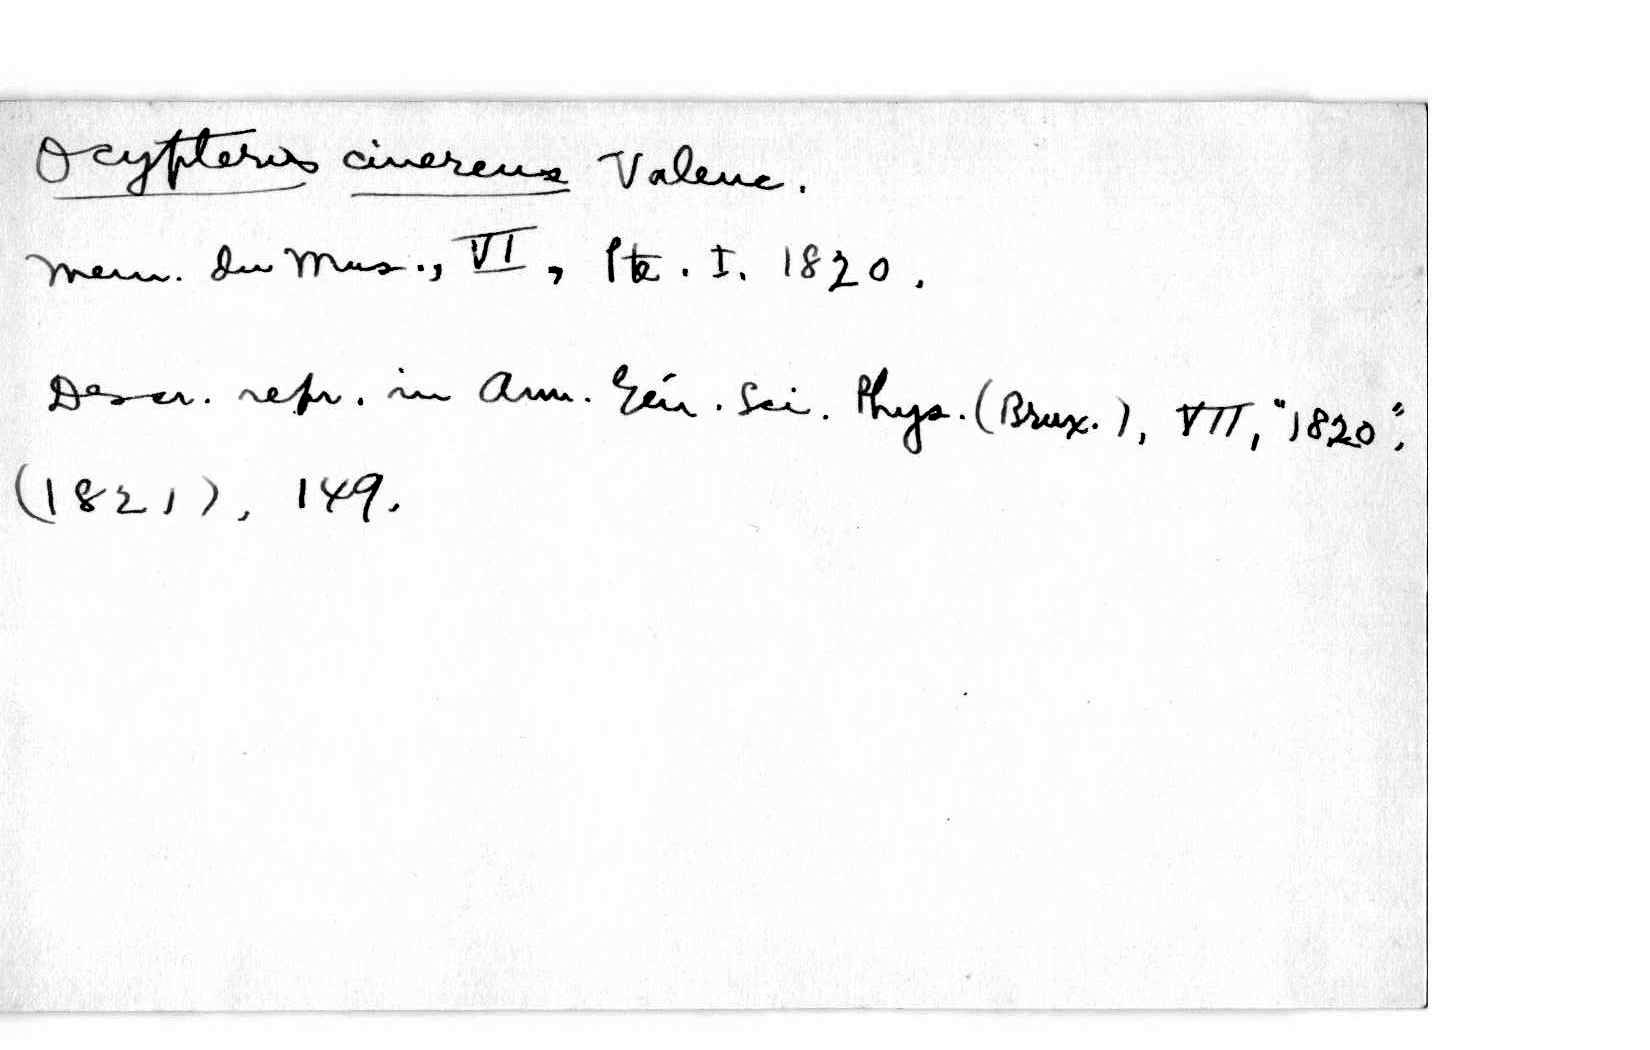 Ocypterus cinereus Valenc.
Mem. du Mus., VI, Pte. I. 1820.
Descr. repr. in Ann. Gén. Sci. Phys. (Brux.), VII, "1820",
(1821), 149.